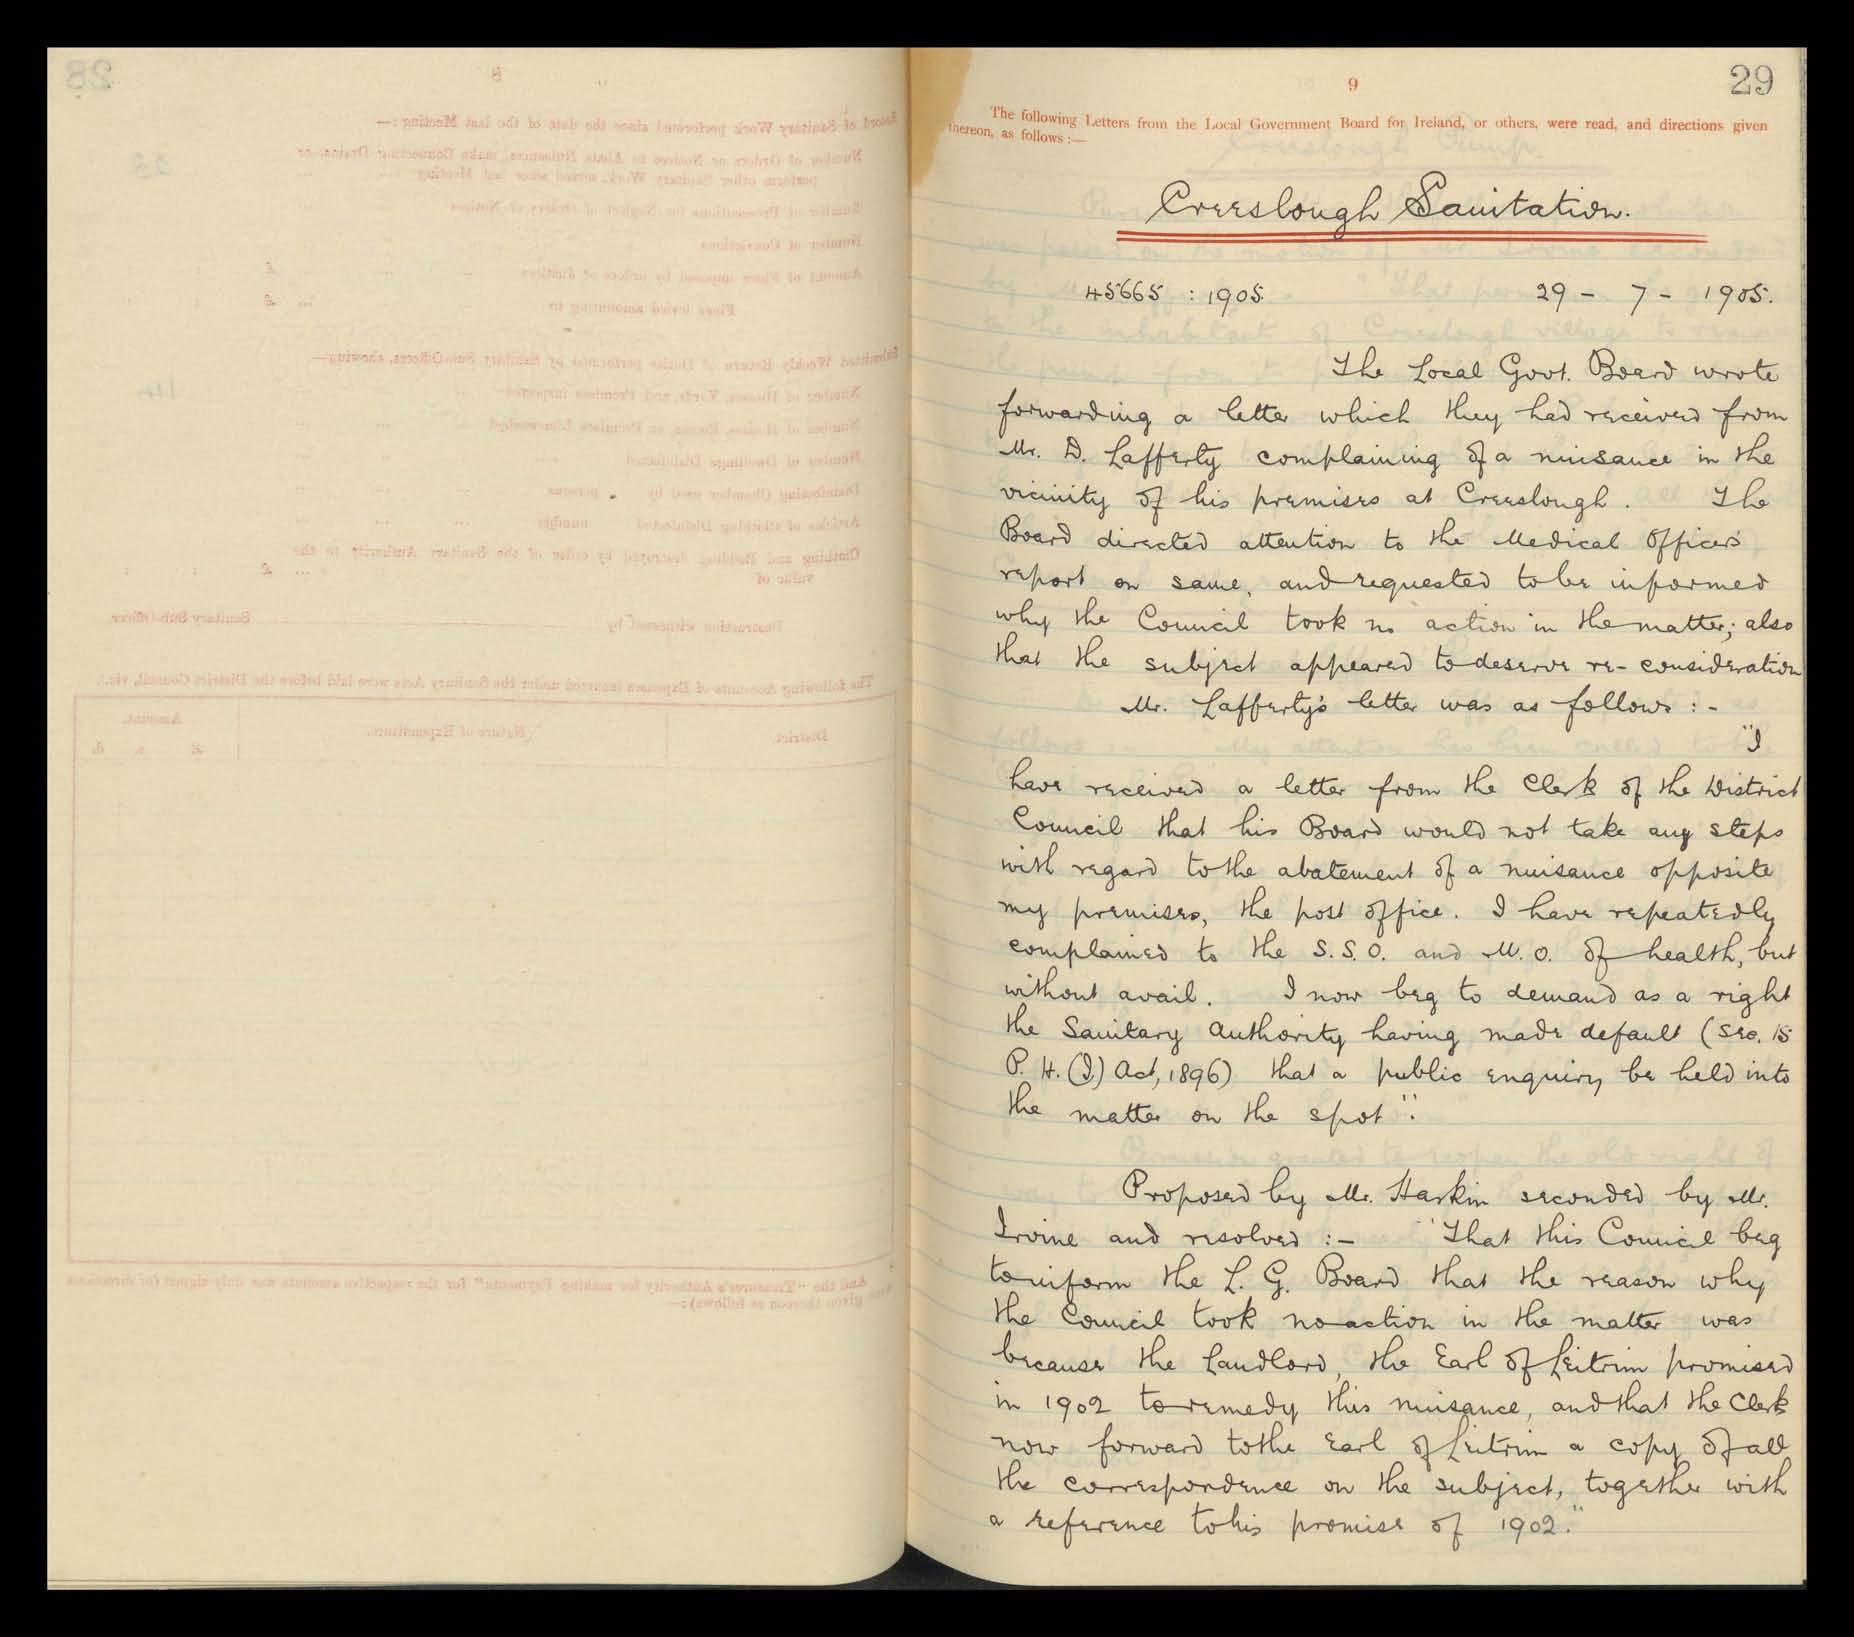 29
9
The following Letters from the Local Government Board for Ireland, or others, were read, and directions given
thereon, as follows :—
Creeslough Sanitation.
45665 : 1905. 29 - 7 - 1905.
The Local Govt. Board wrote
forwarding a letter which they had received from
Mr. D. Lafferty complaining of a nuisance in the
vicinity of his premises at Creeslough. The
Board directed attention to the Medical Officer's
report on same, and requested to be informed
why the Council took no action in the matter; also
that the subject appeared to deserve re-consideration
Mr. Lafferty's letter was as follows :-
"I
have received a letter from the Clerk of the District
Council that his Board would not take any steps
with regard to the abatement of a nuisance opposite
my premises, the post office. I have repeatedly
complained to the S.S.O. and M.O. of health, but
without avail. I now beg to demand as a right
the Sanitary Authority having made default (Sec. 15
P. H. (I) Act, 1896) that a public enquiry be held into
the matter on the spot".
Proposed by Mr. Harkin seconded by Mr.
Irvine and resolved :- "That this Council beg
to inform the L. G. Board that the reason why
the Council took no action in the matter was
because the Landlord, the Earl of Leitrim promised
in 1902 to remedy this nuisance, and that the Clerk
now forward to the Earl of Leitrim a copy of all
the correspondence on the subject, together with
a reference to his promise of 1902."